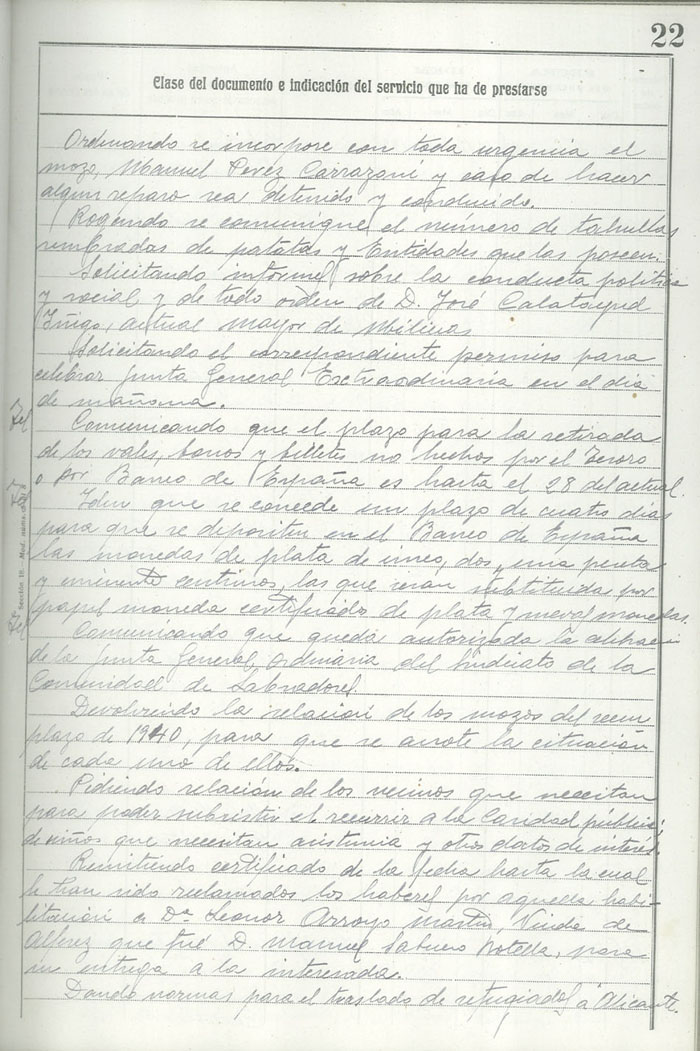 22
Clase del documento e indicación del servicio que ha de prestarse
Ordenando se incorpore con toda urgencia el
mozo, Manuel Perez Carrazoni y caso de hacer
algun reparo sea detenido y conducido.
Rogando se comunique el número de tahullas
sembradas de patatas y Entidades que las poseen.
Solicitando informes sobre la conducta politica
y social y de todo orden de D. José Calatayud
Iñigo, actual mayor de Milicias
Solicitando el correspondiente permiso para
celebrar Junta General Extraordinaria en el dia
de mañana.
Comunicando que el plazo para la retirada
de los vales, bonos y billetes no hechos por el Tesoro
o por Banco de España es hasta el 28 del actual.
Idem que se concede un plazo de cuatro dias
para que se depositen en el Banco de España
las monedas de plata de cinco, dos, una peseta
y cincuenta centimos, las que seran substituida por
papel moneda certificados de plata y nuevas monedas.
Comunicando que queda autorizada la
de la Junta General, ordinaria del Sindicato de la
Comunidad de Labradores.
Devolviendo la relación de los mozos del reem
plazo de 1940, para que se anote la situación
de cada uno de ellos.
Pidiendo relación de los vecinos que necesitan
para poder subsistir el recurrir a la Caridad pública,
de niños que necesitan asistencia y otros datos de interés.
Remitiendo certificado de la fecha hasta la cual
le han sido reclamados los haberes por aquella habi-
litación a Dª Leonor Arroyo Martin, Viuda de
Alferez que fué D. Manuel Sabuco Botella, para
su entrega a la interesada.
Dando normas para el traslado de refugiados a Alicante.